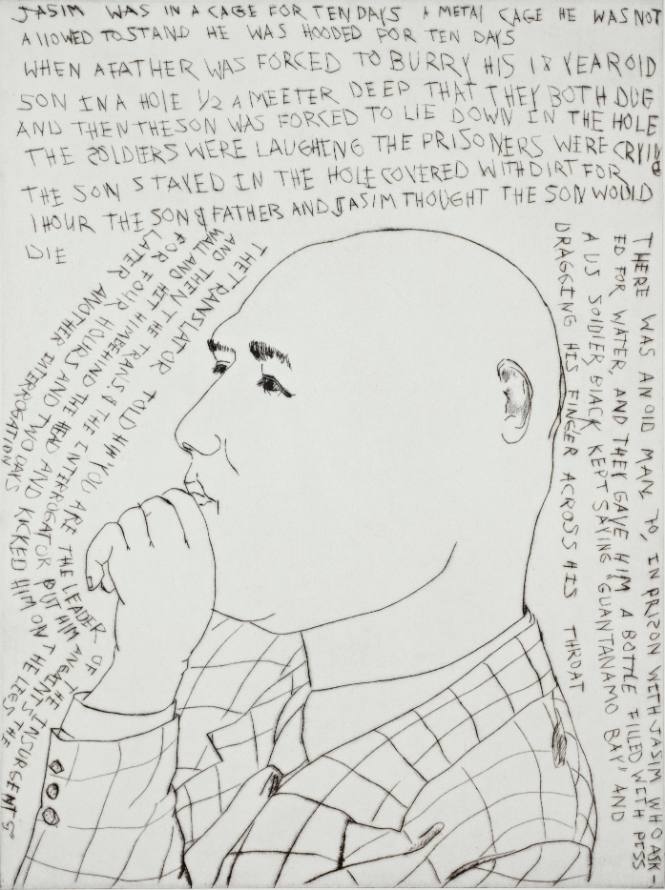 JASIM WAS IN A CAGE FOR TEN DAYS A METAL CAGE HE WAS NOT
ALLOWED TO STAND HE WAS HOODED FOR TEN DAYS
WHEN A FATHER WAS FORCED TO BURRY HIS 18 YEAR OLD
SON IN A HOLE 1/2 A MEETER DEEP THAT THEY BOTH DUG
AND THEN THE SON WAS FORCED TO LIE DOWN IN THE HOLE
THE SOLDIERS WERE LAUGHING THE PRISONERS WERE CRYING
THE SON STAYED IN THE HOLE COVERED WITH DIRT FOR
1 HOUR THE SON & FATHER AND JASIM THOUGHT THE SON WOULD
DIE
THE TRANSLATOR TOLD HIM YOU ARE THE LEADER OF THE INSURGENTS"
AND THEN THE TRANS & THE INTERROGATOR PUT HIM
WALL AND HIT HIM BEHIND THE HEAD AND KICKED HIM ON THE LEGS THE
FOR FOUR HOURS AND TWO DAYS
LATER ANOTHER INTERROGATION
THERE WAS AN OLD MAN 70, IN PRIZON WITH JASIM WHO ASK-
ED FOR WATER, AND THEY GAVE HIM A BOTTLE FILLED WITH PESS
A US SOLDIER BLACK KEPT SAYING "GUANTANAMO BAY" AND
DRAGGING HIS FINGER ACROSS HIS THROAT